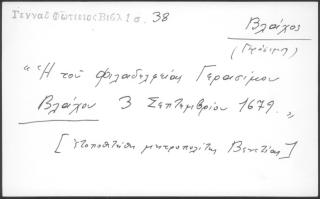 Γενναδ Φωτιειος Βιβλ 1 σ. 38
Βλάχος
(Γεράσιμος)
"Ἡ τοῦ Φιλαδελφείας Γερασίμου
Βλάχου 3 Σεπτεμβρίου 1679.„
[τοποθέτηση μητροπολίτης Βενετίας]